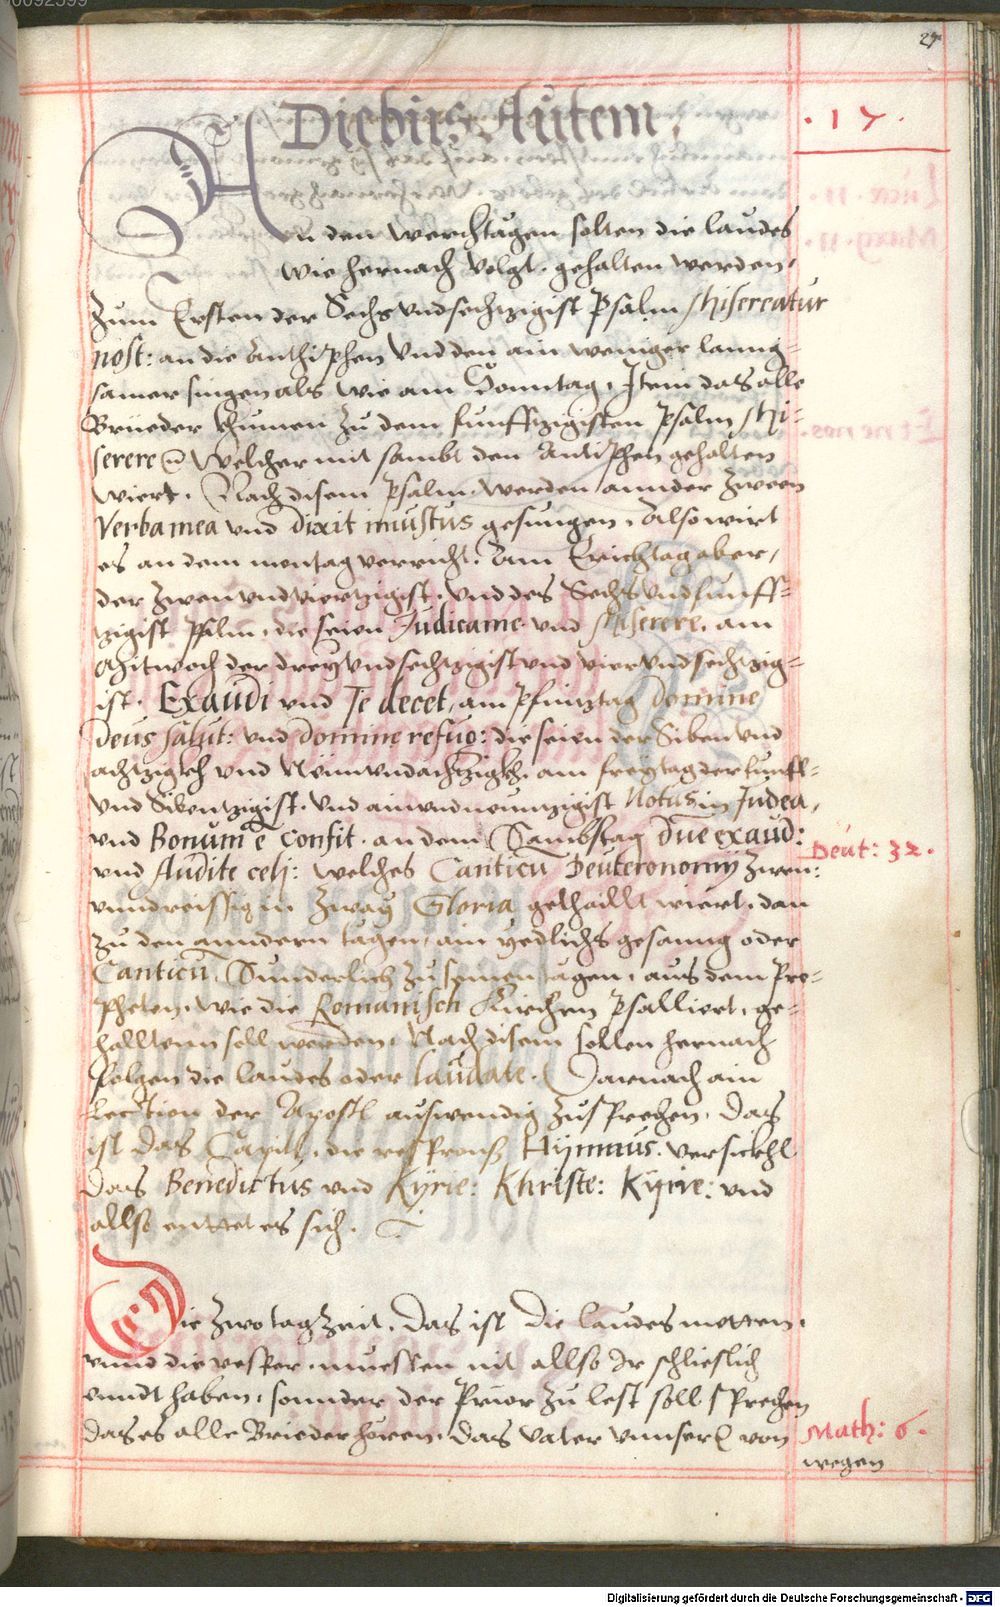 27
Diebus Autem,
. 17 .
An den werchtagen sollen die laudes
wie hernach volgt. gehalten werden.
Zum Ersten der Sechs vnd sechtzigist Psalm Misereatur
nost: an die Anthiphen vnd den ain weniger lanng-
samer singen als wie am Sonntag. Item das alle
Brüeder khumen zu dem funfftzigisten Psalm Mi-
serere welcher mit sambt den Antiphen gehalten
wiert. Nach disem Psalm werden annder zween
Verba mea vnd dixit iniustus gesungen. Also wirt
es an dem montag verricht. Am Erichtag aber,
der zwen vnd viertzigist. vnd des Sechs vnd funff-
tzigist Psalm. die seien Judica me vnd Miserere. am
Mitwoch der drey vnd sechtzigist vnd vier vnd sechtzig-
ist. Exaudi vnd Te decet, am Pfintztag Domine
Deus salut: vnd domine refug: die seien der Siben vnd
achtzigist vnd Neün vnd achtzigist. am freytag der funff-
vnd Sibentzigist. vnd ain vnd neuntzigist Notus in Judea,
vnd Bonum e confit. an dem Sambstag dne exaud:
Deut: 32.
vnd Audite celi: welches Canticu Deuteronomij zwen:
vnndreissig in zway Gloria gethaillt wiert. dan
zu den anndern tagen, ain yedlichs gesanng oder
Canticu. Sunderlich zu seinen tagen. aus dem Pro-
pheten. wie die Romanisch Kirchen psalliert. ge-
halltenn soll werden. Nach disem sollen hernach
folgen die laudes oder laudate. Darnach ain
Lection der Apostl auswendig zu sprechen. Das
ist das Capitl. die responß Hijmnus. versickhl
das Benedictus vnd Kÿrie: Khriste: Kÿrie: vnd
allso enndet es sich.
Die zwo tag zeit. das ist die laudes metten.
vnnd die vesper. muessen nit allso Ir schlieslich
ennndt haben. sonnder der Prior zu lest soll sprechen
das es alle Brieder hören. das vater vnnser von
Math: 6.
wegen
Digitalisierung gefördert durch die Deutsche Forschungsgemeinschaft - DFG